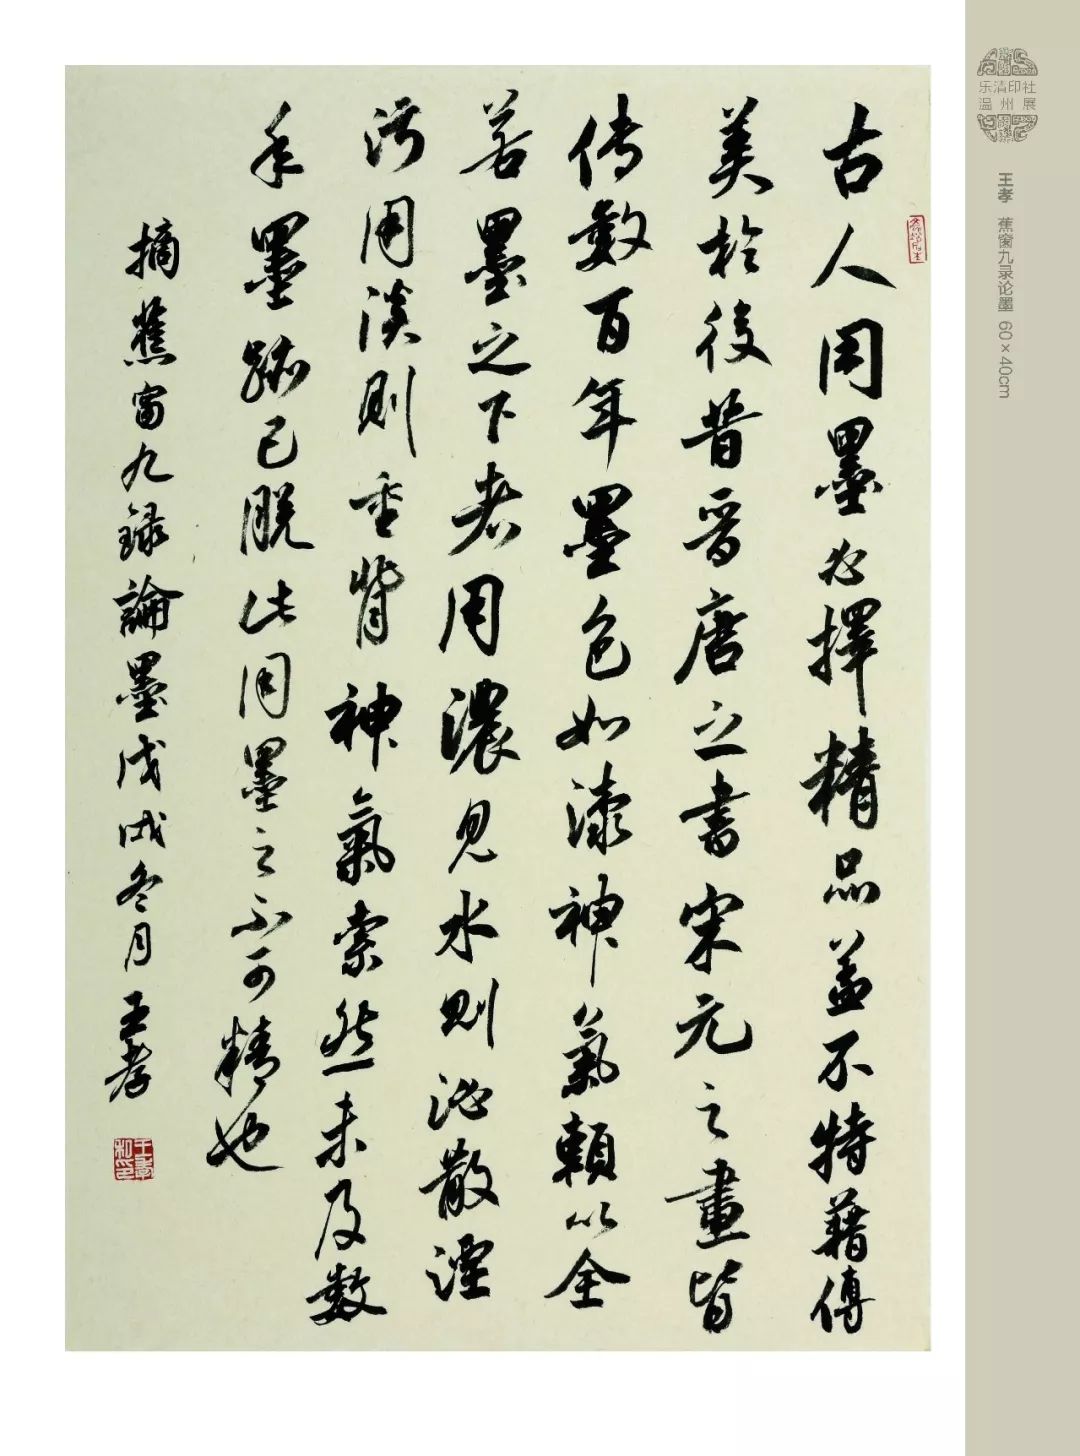 古人用墨必擇精品蓋不特藉傳
美於後昔晉唐之書宋元之畫皆
傳數百年墨色如漆神氣賴以全
若墨之下者用濃見水則沁散湮
污用淡則重背神氣索然未及數
年墨跡已脫此用墨之不可精也
摘蕉窗九録論墨戊戌冬月王孝
王孝私印
乐清印社
温州展
王孝 蕉窗九录论墨 60×40cm